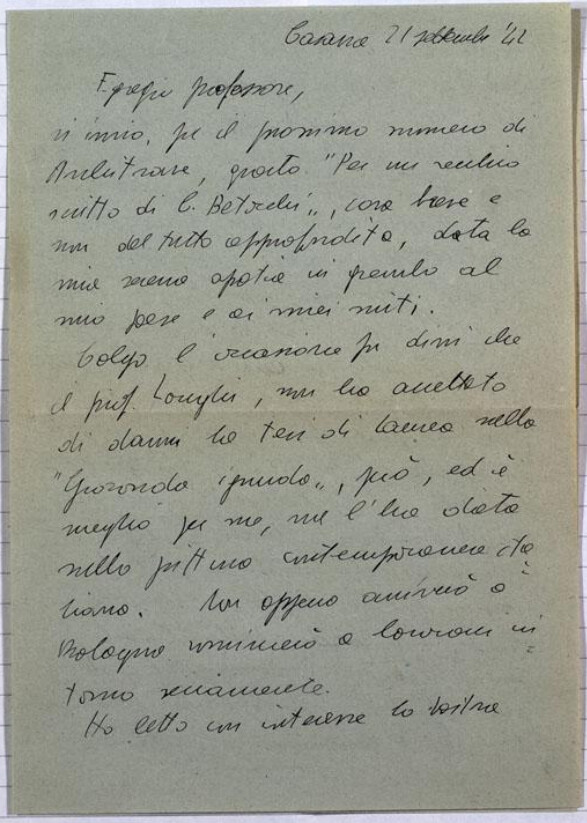 Casarsa 21 settembre '42
Egregio professore,
vi invio, per il prossimo numero di
Architrave, questo "Per un vecchio
scritto di C. Betocchi", cosa breve e
non del tutto approfondita, data la
mia serena apatia in grembo al
mio paese e ai miei miti.
Colgo l'occasione per dirvi che
il prof. Longhi, non ha accettato
di darmi la tesi di laurea sulla
"Gioconda ignuda", però, ed è
meglio per me, me l'ha data
sulla pittura contemporanea ita
liana. Non appena arriverò a
Bologna comincerò a lavorarci in
torno seriamente.
Ho letto con interesse la vostra